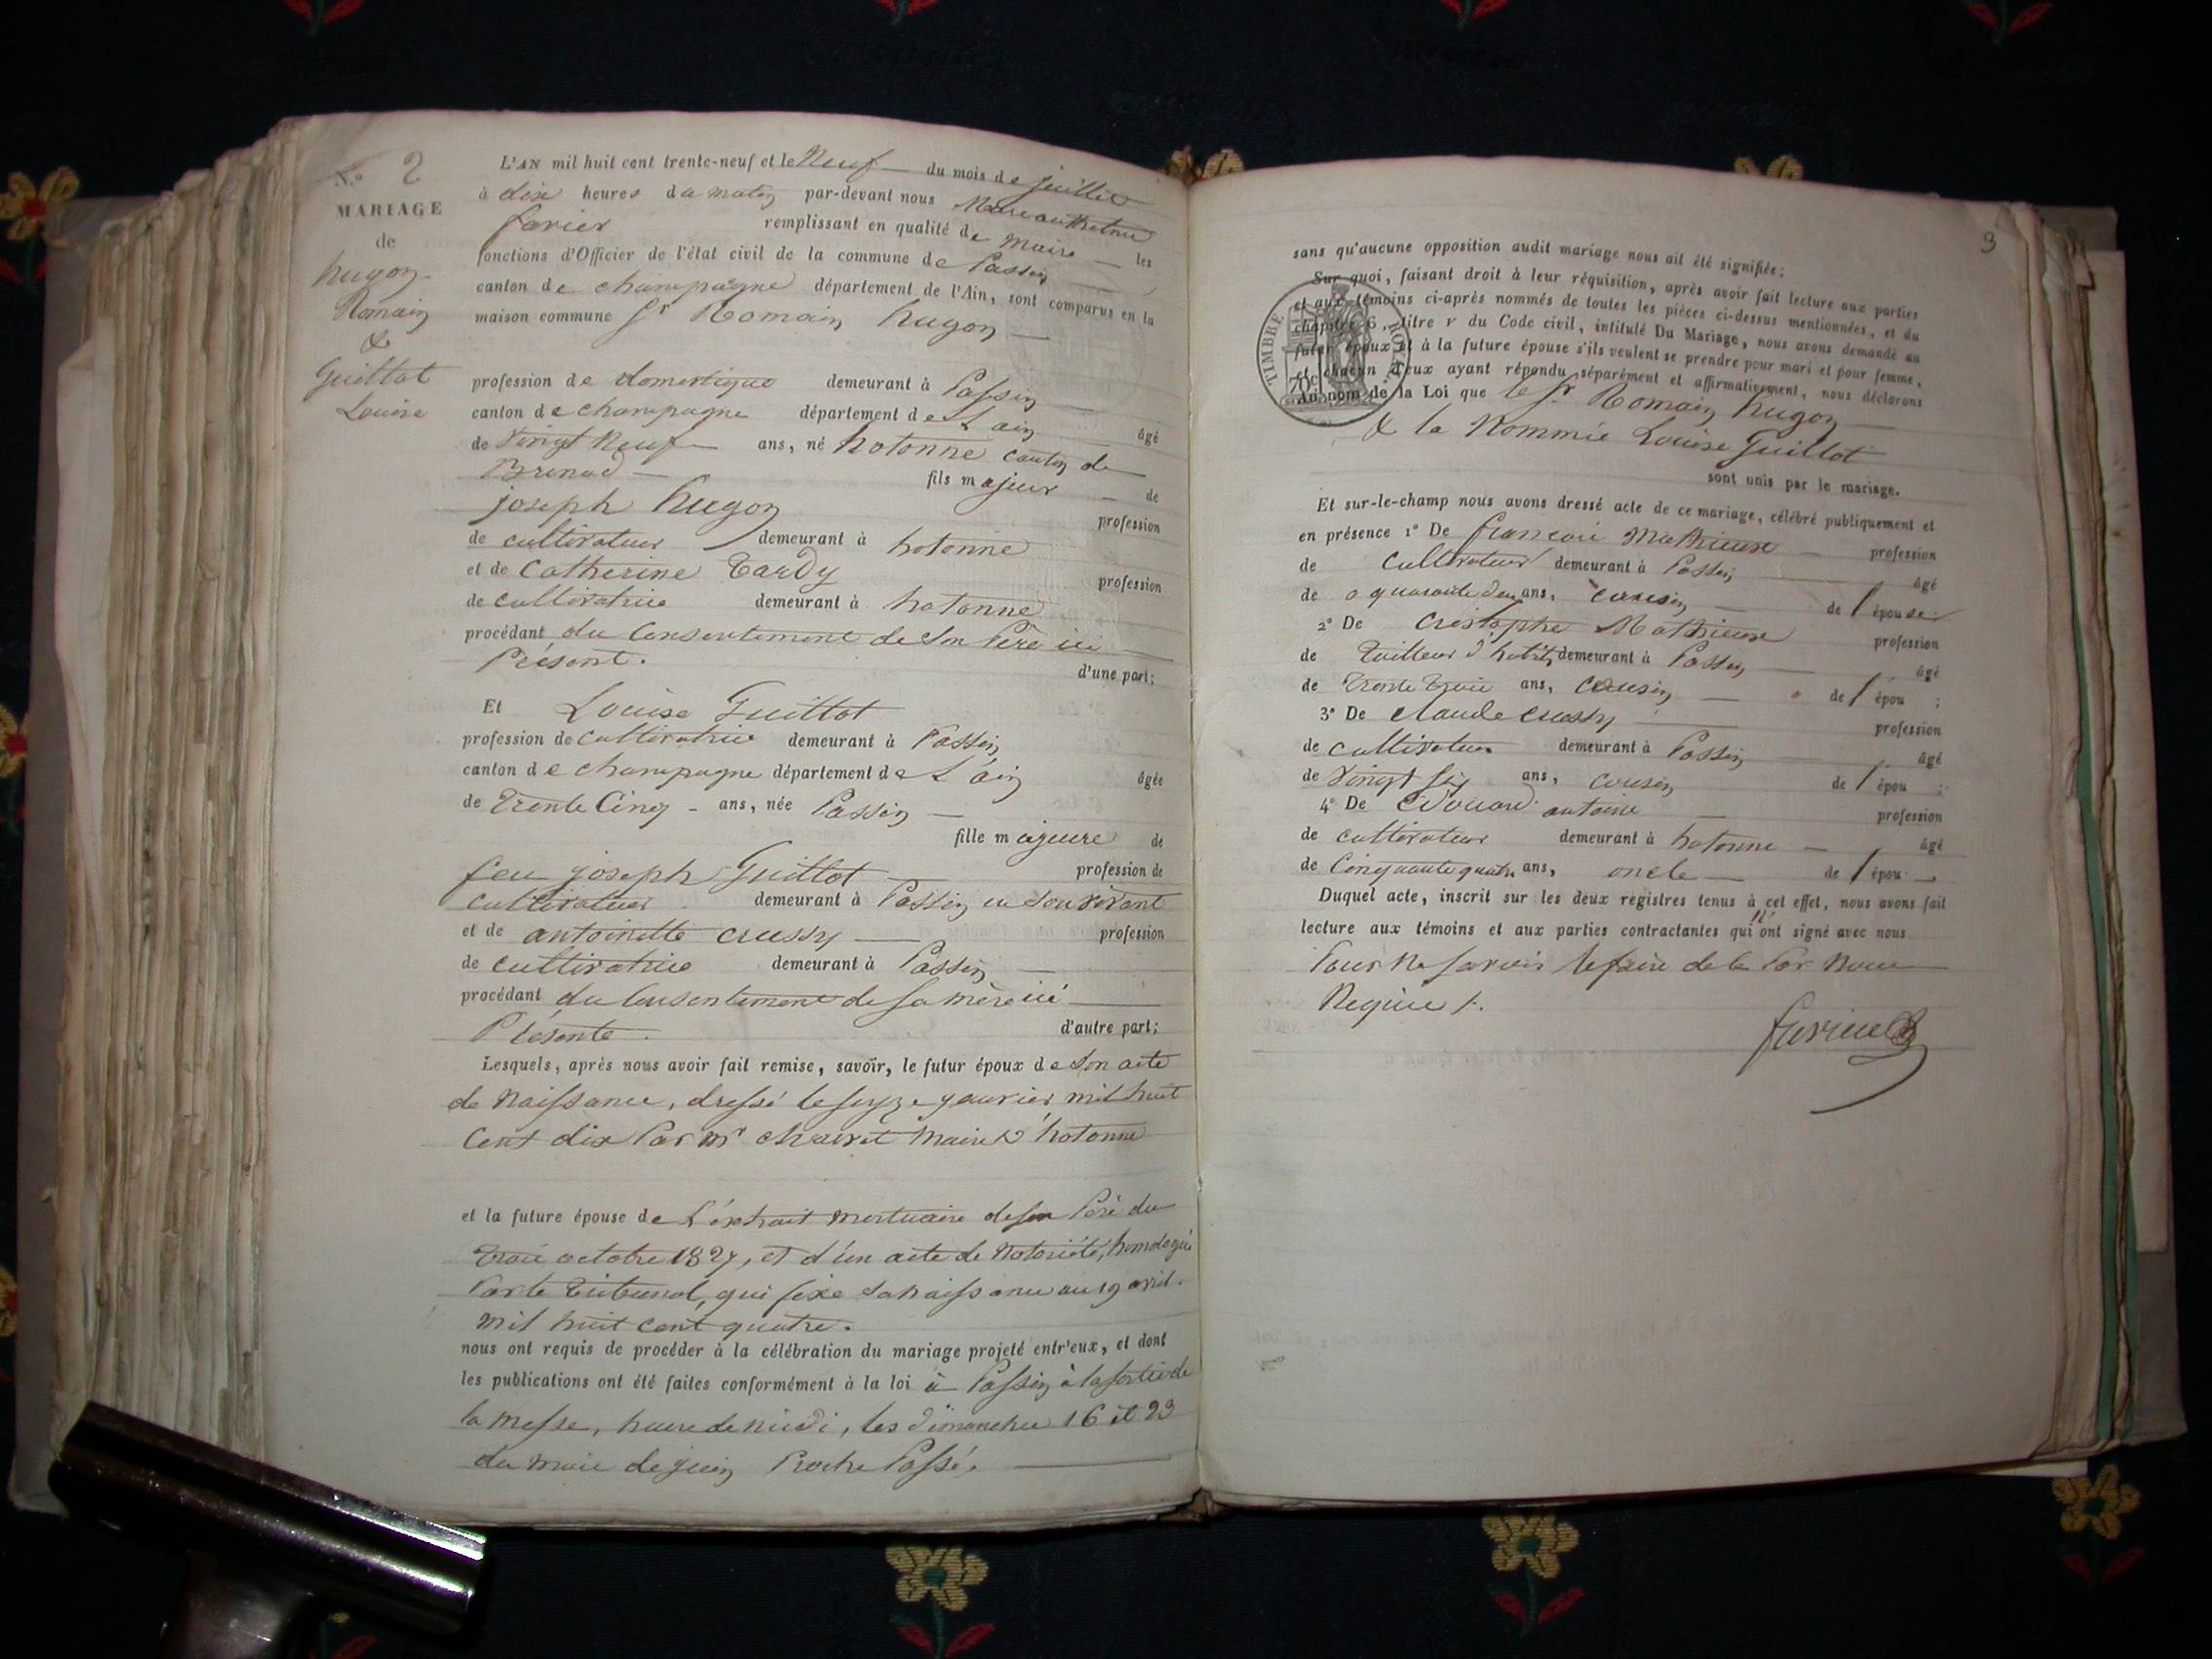 N.° 2
MARIAGE
de
hugon
Romain
&
Guillot
Louise
L'AN mil huit cent trente-neuf et le Neuf du mois de juillet
à dix heures du matin par-devant nous
favier remplissant en qualité de Maire les
fonctions d'Officier de l'état civil de la commune de Passin
canton de champagne département de l'Ain, sont comparus en la
maison commune Sr Romain hugon
profession de domestique demeurant à Passin
canton de champagne département de L'ain âgé
de Vingt Neuf ans, né hotonne canton de
Brenod fils majeur de
joseph hugon profession
de cultivateur demeurant à hotonne
et de Catherine Tardy profession
de cultivatrice demeurant à hotonne
procédant du Consentement de Son Père ici
Présent. d'une part;
Et Louise Guillot
profession de Cultivatrice demeurant à Passin
canton de champagne département de L'ain âgée
de Trente Cinq ans, née Passin
fille majeure de
feu joseph Guillot profession de
Cultivateur demeurant à Passin en Son vivant
et de antoinette crussy profession
de cultivatrice demeurant à Passin
procédant du Consentement de Sa mère ici
Présente. d'autre part;
Lesquels, après nous avoir fait remise, savoir, le futur époux de Son acte
de Naissance, dressé le seyze janvier mil huit
Cent dix Par mr Maire d'hotonne
et la future épouse de L'extrait mortuaire de son Père du
Trois octobre 1827, et d'un acte de Notoriété, homologué
Par le Tribunal, qui fixe Sa naissance au 19 avril
mil huit cent quatre.
nous ont requis de procéder à la célébration du mariage projeté entr'eux, et dont
les publications ont été faites conformément à la loi à Passin à la sortie de
la messe, heure de midi, les dimanches 16 et 23
du mois de juin Proche Passé.
3
sans qu'aucune opposition audit mariage nous ait été signifiée;
Sur quoi, faisant droit à leur réquisition, après avoir fait lecture aux parties
et aux témoins ci-après nommés de toutes les pièces ci-dessus mentionnées, et du
chapitre 6, titre V du Code civil, intitulé Du Mariage, nous avons demandé au
futur époux et à la future épouse s'ils veulent se prendre pour mari et pour femme,
et chacun d'eux ayant répondu séparément et affirmativement, nous déclarons
Au nom de la Loi que le Sr Romain hugon
& la Nommée Louise Guillot
sont unis par le mariage.
TIMBRE ROYAL
70c
Et sur-le-champ nous avons dressé acte de ce mariage, célébré publiquement et
en présence 1° De francois Mathieux profession
de Cultivateur demeurant à Passin âgé
de quarante deux ans, cousin de l'épouse
2° De Cristophe Mathieux profession
de Tailleur d'habits demeurant à Passin âgé
de Trente Trois ans, Cousin de l'épou ;
3° De claude crussy profession
de cultivateur demeurant à Passin âgé
de Vingt Six ans, cousin de l'épou ;
4° De Edouard antoine profession
de cultivateur demeurant à hotonne âgé
de Cinquante quatre ans, oncle de l'épou
Duquel acte, inscrit sur les deux registres tenus à cet effet, nous avons fait
lecture aux témoins et aux parties contractantes qui n'ont signé avec nous
Pour Ne Savoir le faire de Par Nous
Requis /.
favier